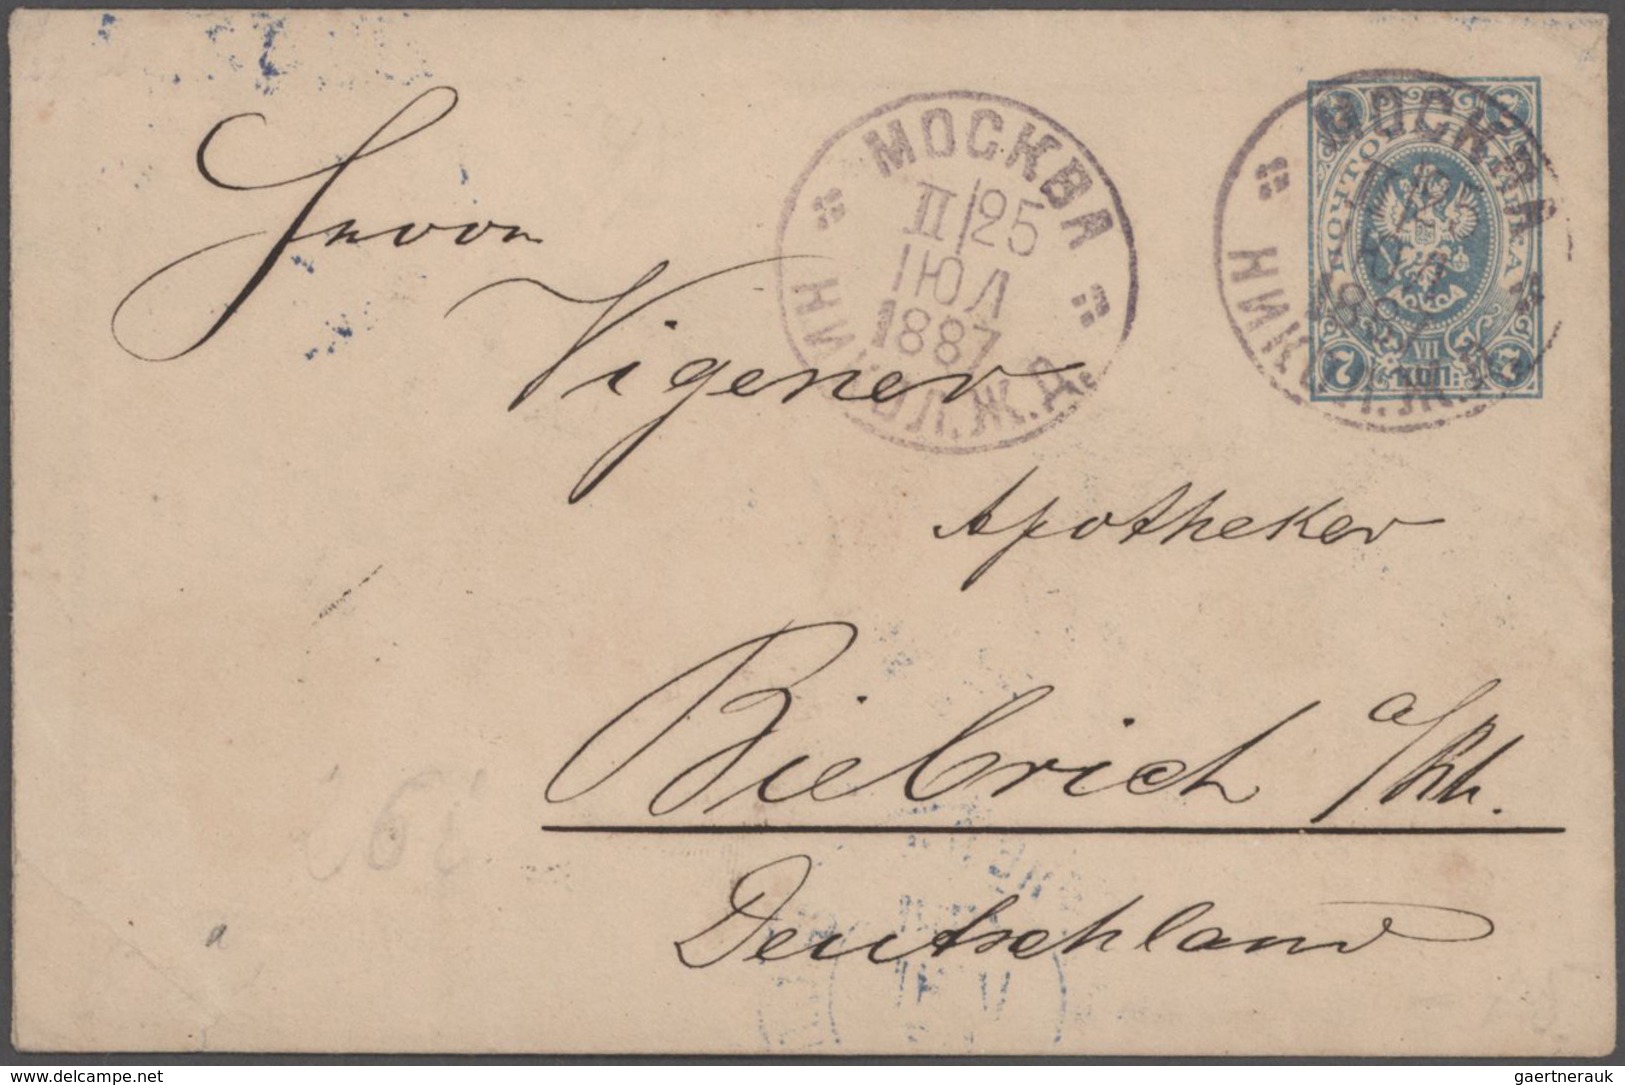 МОСКВА
II 25
ІЮЛ
1887
НИКОЛ. Ж. Д.
МОСКВА
1887
7 VII 7
КОП:
Herrn
Vigener
Apotheker
Biebrich a/Rh.
Deutschland
a
www.delcampe.net
gaertnerauk